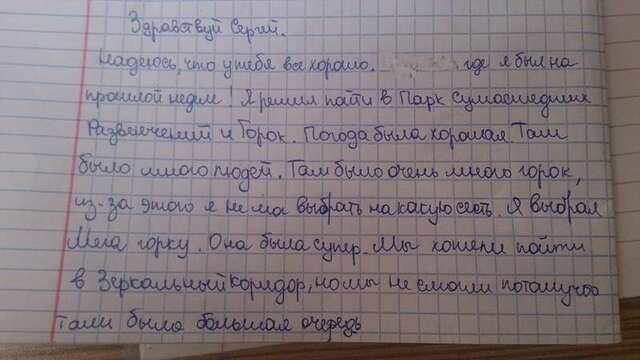 Здравствуй Сергей.
Надеюсь, что у тебя все хорошо. где я был на
прошлой неделе! Я решил пойти в Парк Сумасшедших
Развлечений и Горок. Погода была хорошая. Там
было много людей. Там было очень много горок,
из-за этого я не мог выбрать на какую сесть. Я выбрал
Мега горку. Она была супер. Мы хотели пойти
в Зеркальный коридор, но мы не смогли потому что
там была большая очередь